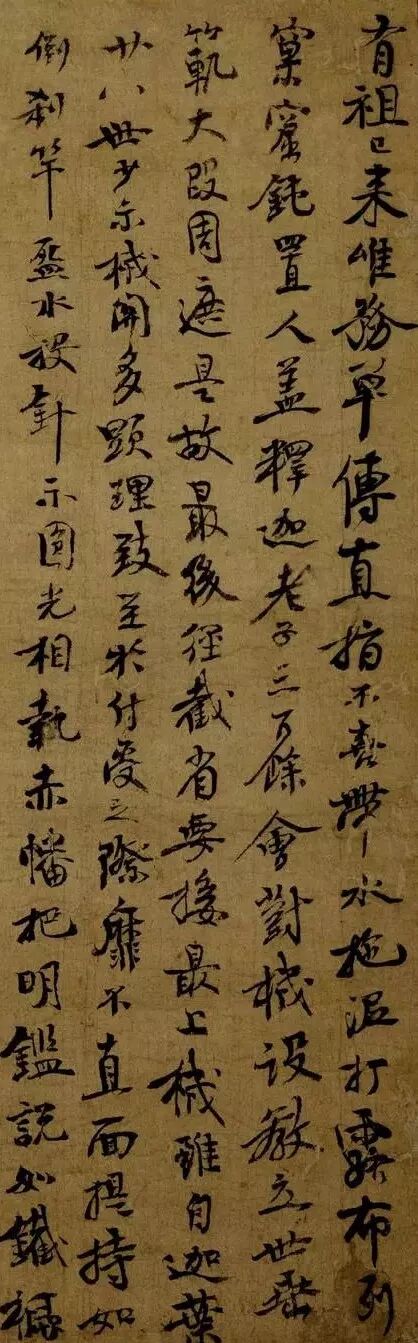 有祖已来唯務單傳直指不喜帶水拖泥打露布列
窠窟鈍置人盖釋迦老子三百餘會對機設教立世垂
範大段周遮是故最後徑截省要接最上機雖自迦葉
廿八世少示機關多顯理致至於付受之際靡不直面提持如
倒刹竿盋水投針示圓光相執赤幡把明鑑說如鐵橛